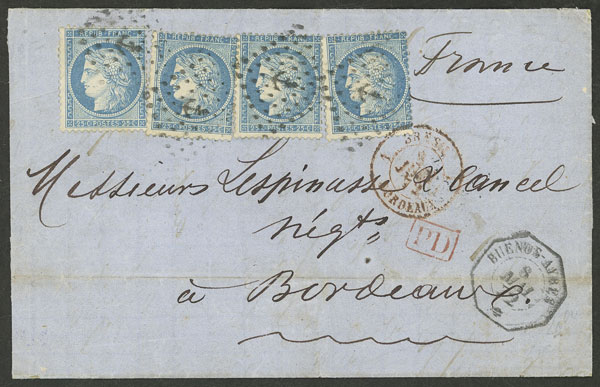 REPUB. FRANC. REPUB. FRANC. REPUB. FRANC. REPUB. FRANC.
25·C·POSTES·25·C 25·C·POSTES·25·C 25·C·POSTES·25·C 25·C·POSTES·25·C
France
BORDEAUX
Messieurs Lespinasse & Cancel
Négts
PD
BUENOS-AYRES
8
à Bordeaux.